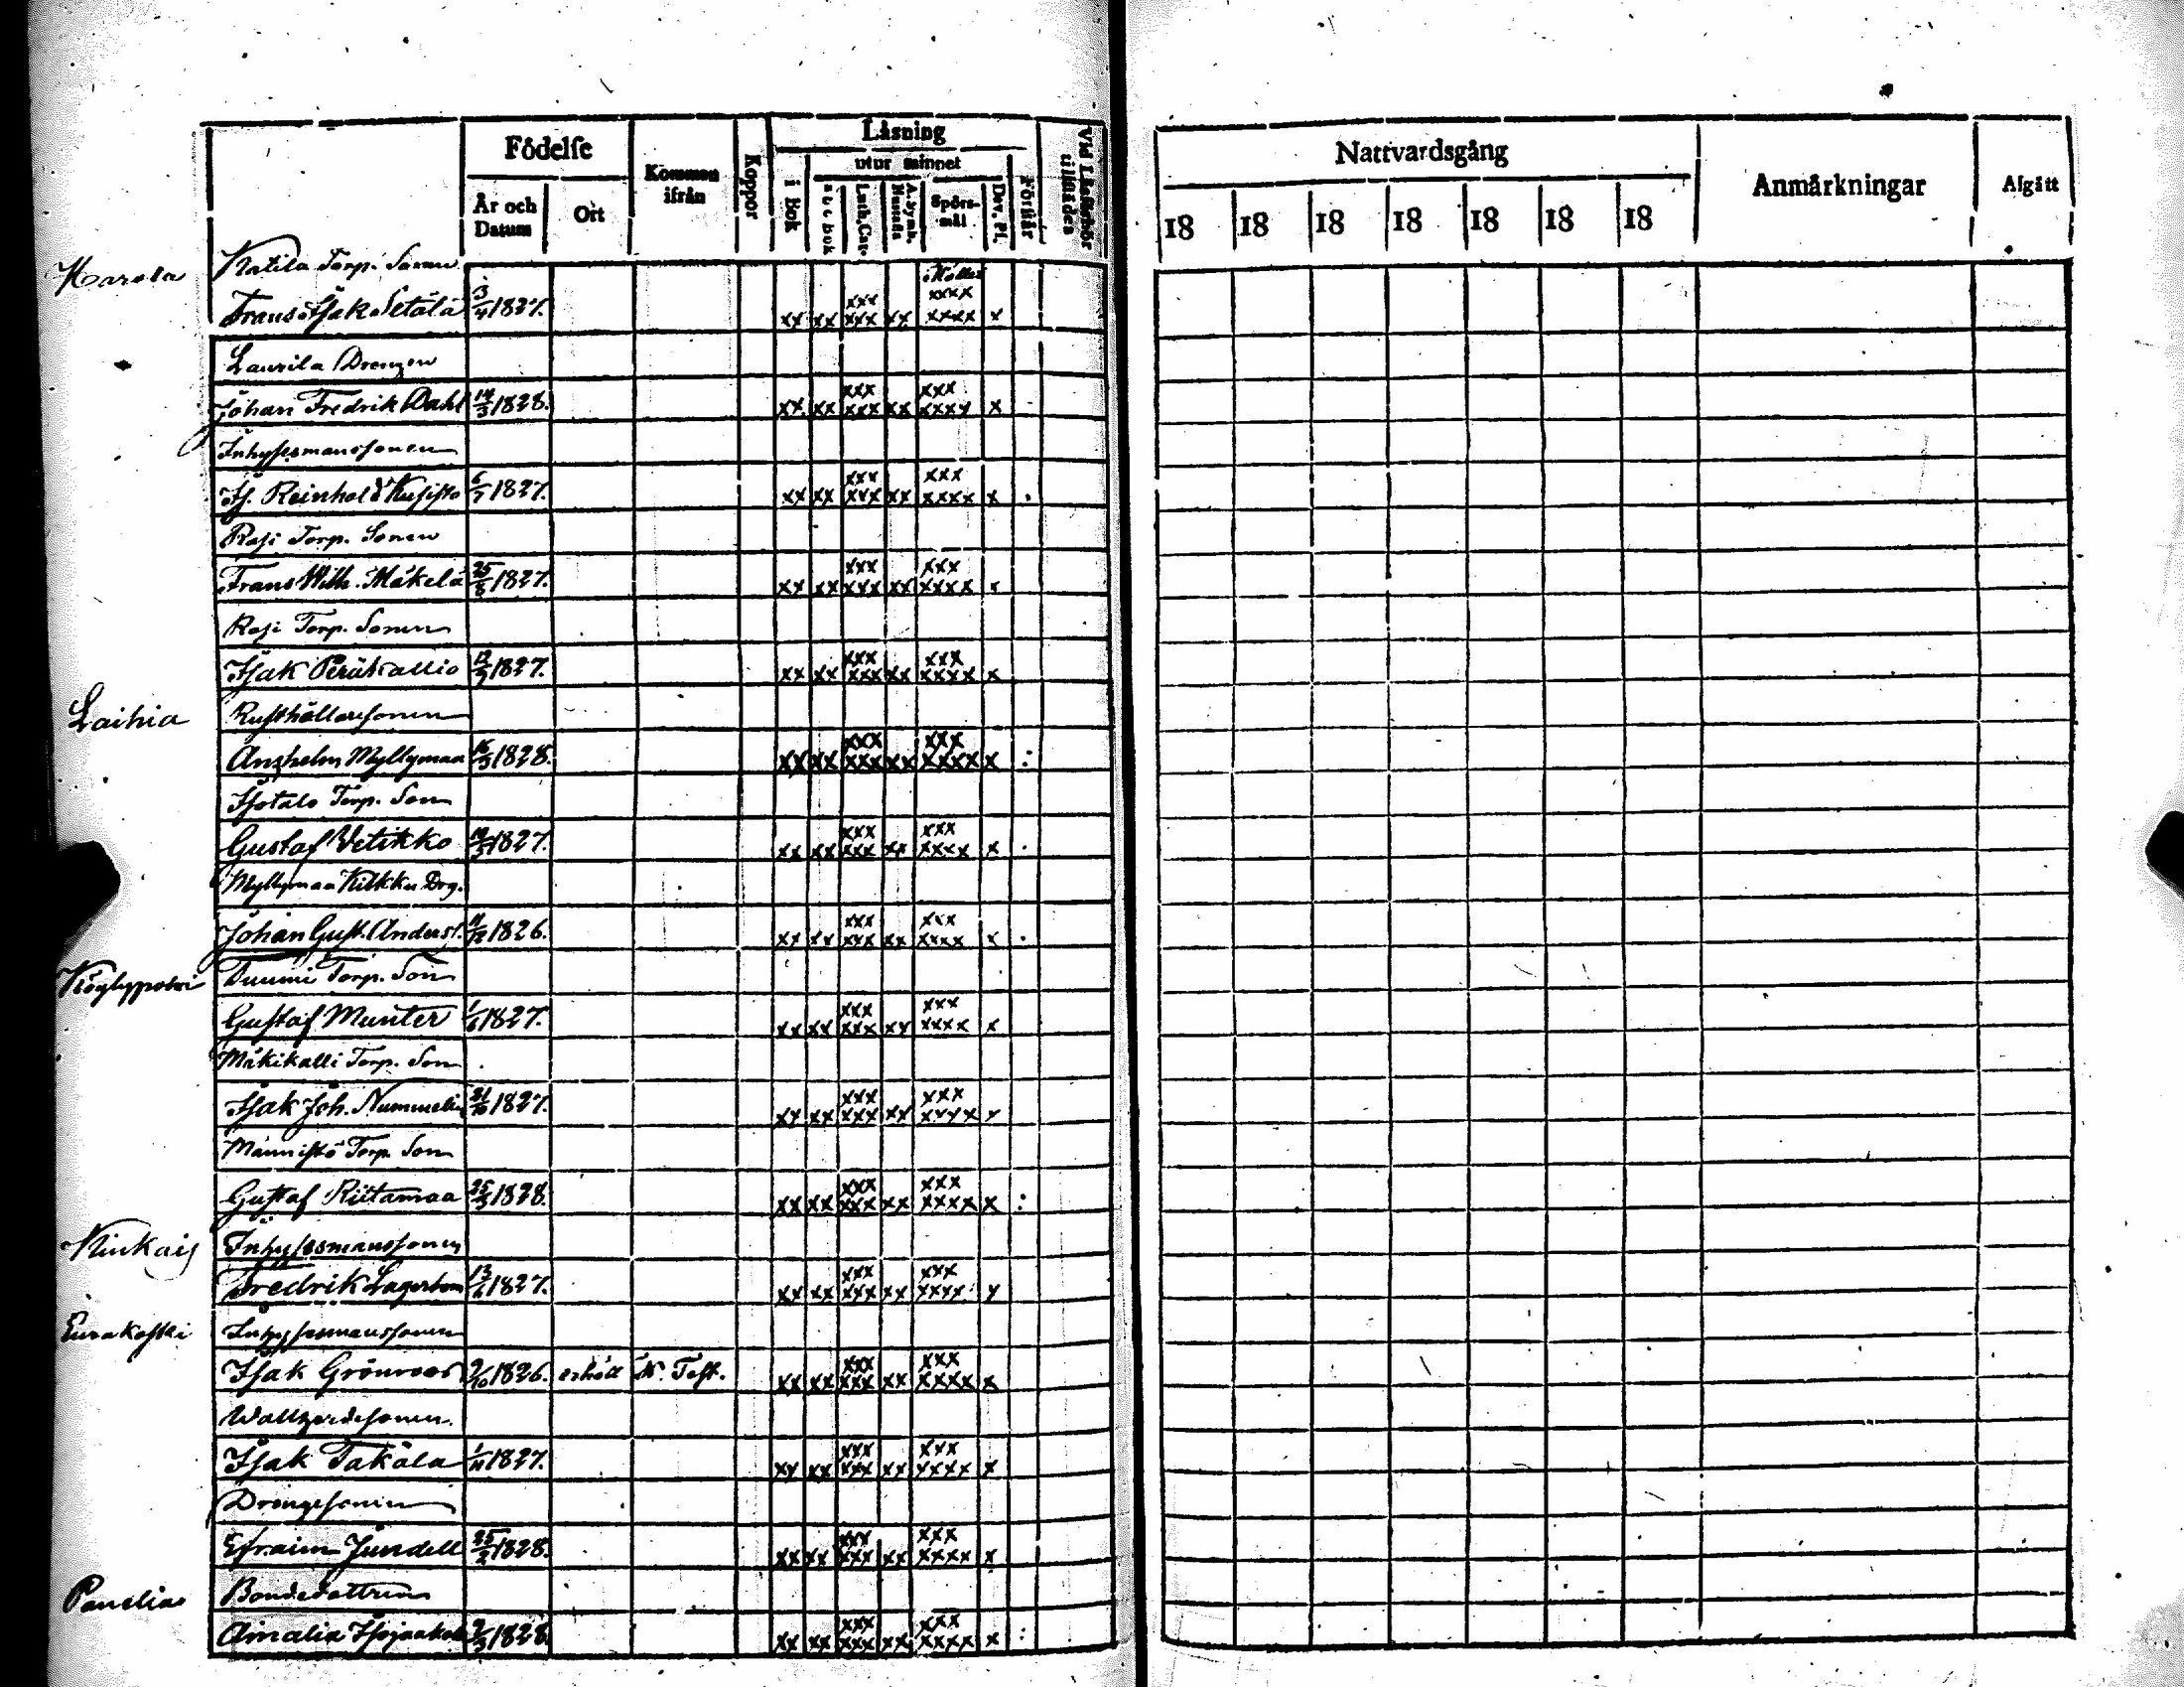 Födelse
Läsning
Vid Läseförhör tillstädes
Nattvardsgång
Kommen ifrån
Koppor
utur minnet
Anmärkningar
Afgått
År och Datum
Ort
i Bok
a b c bok
Luth. Cat.
A. Symb. Hustafla
Spörsmål
Dav. Ps.
Förstår
18 18 18 18 18 18 18
Harola Katila Torp. Sonen
Frans Isak Setälä 3/4 1827. xx xx xxx xxx xx xxxx xxxx x
Laurila Drengen
Johan Fredrik Dahl 14/3 1828. xx xx xxx xxx xx xxx xxxx x
Inhysesmanssonen
Is. Reinhold Kusisto 6/7 1827. xx xx xxx xxx xx xxx xxxx x
Rasi Torp. Sonen
Frans Wilh. Mäkelä 25/8 1827. xx xx xxx xxx xx xxx xxxx x
Rasi Torp. Sonen
Isak Peräkallio 12/9 1827. xx xx xxx xxx xx xxx xxxx x
Laihia Rusthållaresonen
Anshelm Myllymaa 16/3 1828. xx xx xxx xxx xx xxx xxxx x :
Isotalo Torp. Son
Gustaf Vetikko 1827. xx xx xxx xxx xx xxx xxxx x
Myllymaa Kilkku Drg.
Johan Gust. Anders. 11/12 1826. xx xx xxx xxx xx xxx xxxx x
Köylypolvi Tuumi Torp. Son
Gustaf Munter 1/6 1827. xx xx xxx xxx xx xxx xxxx x
Mäkikalli Torp. Son
Isak Joh. Nummelin 21/10 1827. xx xx xxx xxx xx xxx xxxx x
Männistö Torp. Son
Gustaf Riitamaa 25/3 1828. xx xx xxx xxx xx xxx xxxx x :
Kiukais Inhysesmanssonen
Fredrik Lagerbom 13/6 1827. xx xx xxx xxx xx xxx xxxx x
Eurakoski Inhysesmanssonen
Isak Grönroos 9/10 1826. erhöll N. Test. xx xx xxx xxx xx xxx xxxx x
Isak Takala 1/11 1827. xx xx xxx xxx xx xxx xxxx x
Drengesonen
Efraim Jundell 25/2 1828. xx xx xxx xxx xx xxx xxxx x
Panelia Bondedottren
Amalia 2/3 1828. xx xx xxx xxx xx xxx xxxx x :